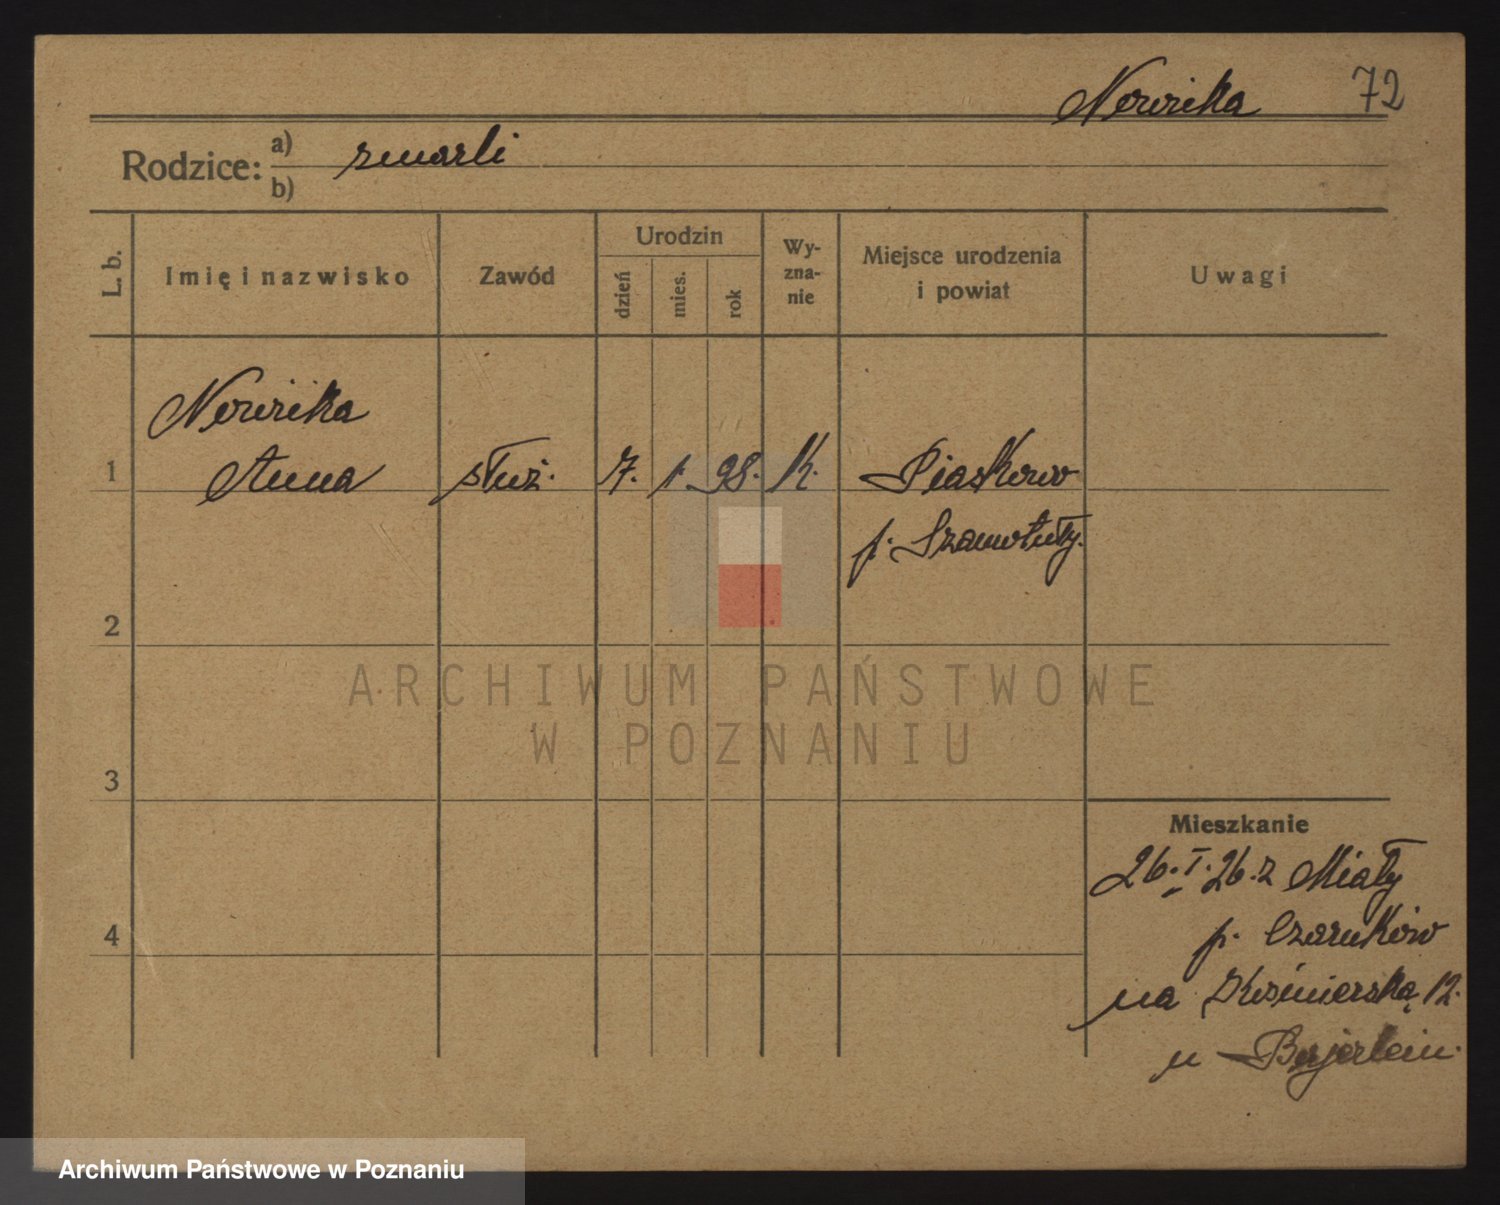 72
Rodzice: a) zmarli
b)
L. b.
Imię i nazwisko
Zawód
Urodzin
dzień
mies.
rok
Wy-
zna-
nie
Miejsce urodzenia
i powiat
Uwagi
1
Anna służ. 7. 1. 98. K. Piaskowo
p. Szamotuły.
2
3
4
Mieszkanie
26.I.26. z Miały
p. Czarnków
na 12.
u
ARCHIWUM PAŃSTWOWE
W POZNANIU
Archiwum Państwowe w Poznaniu